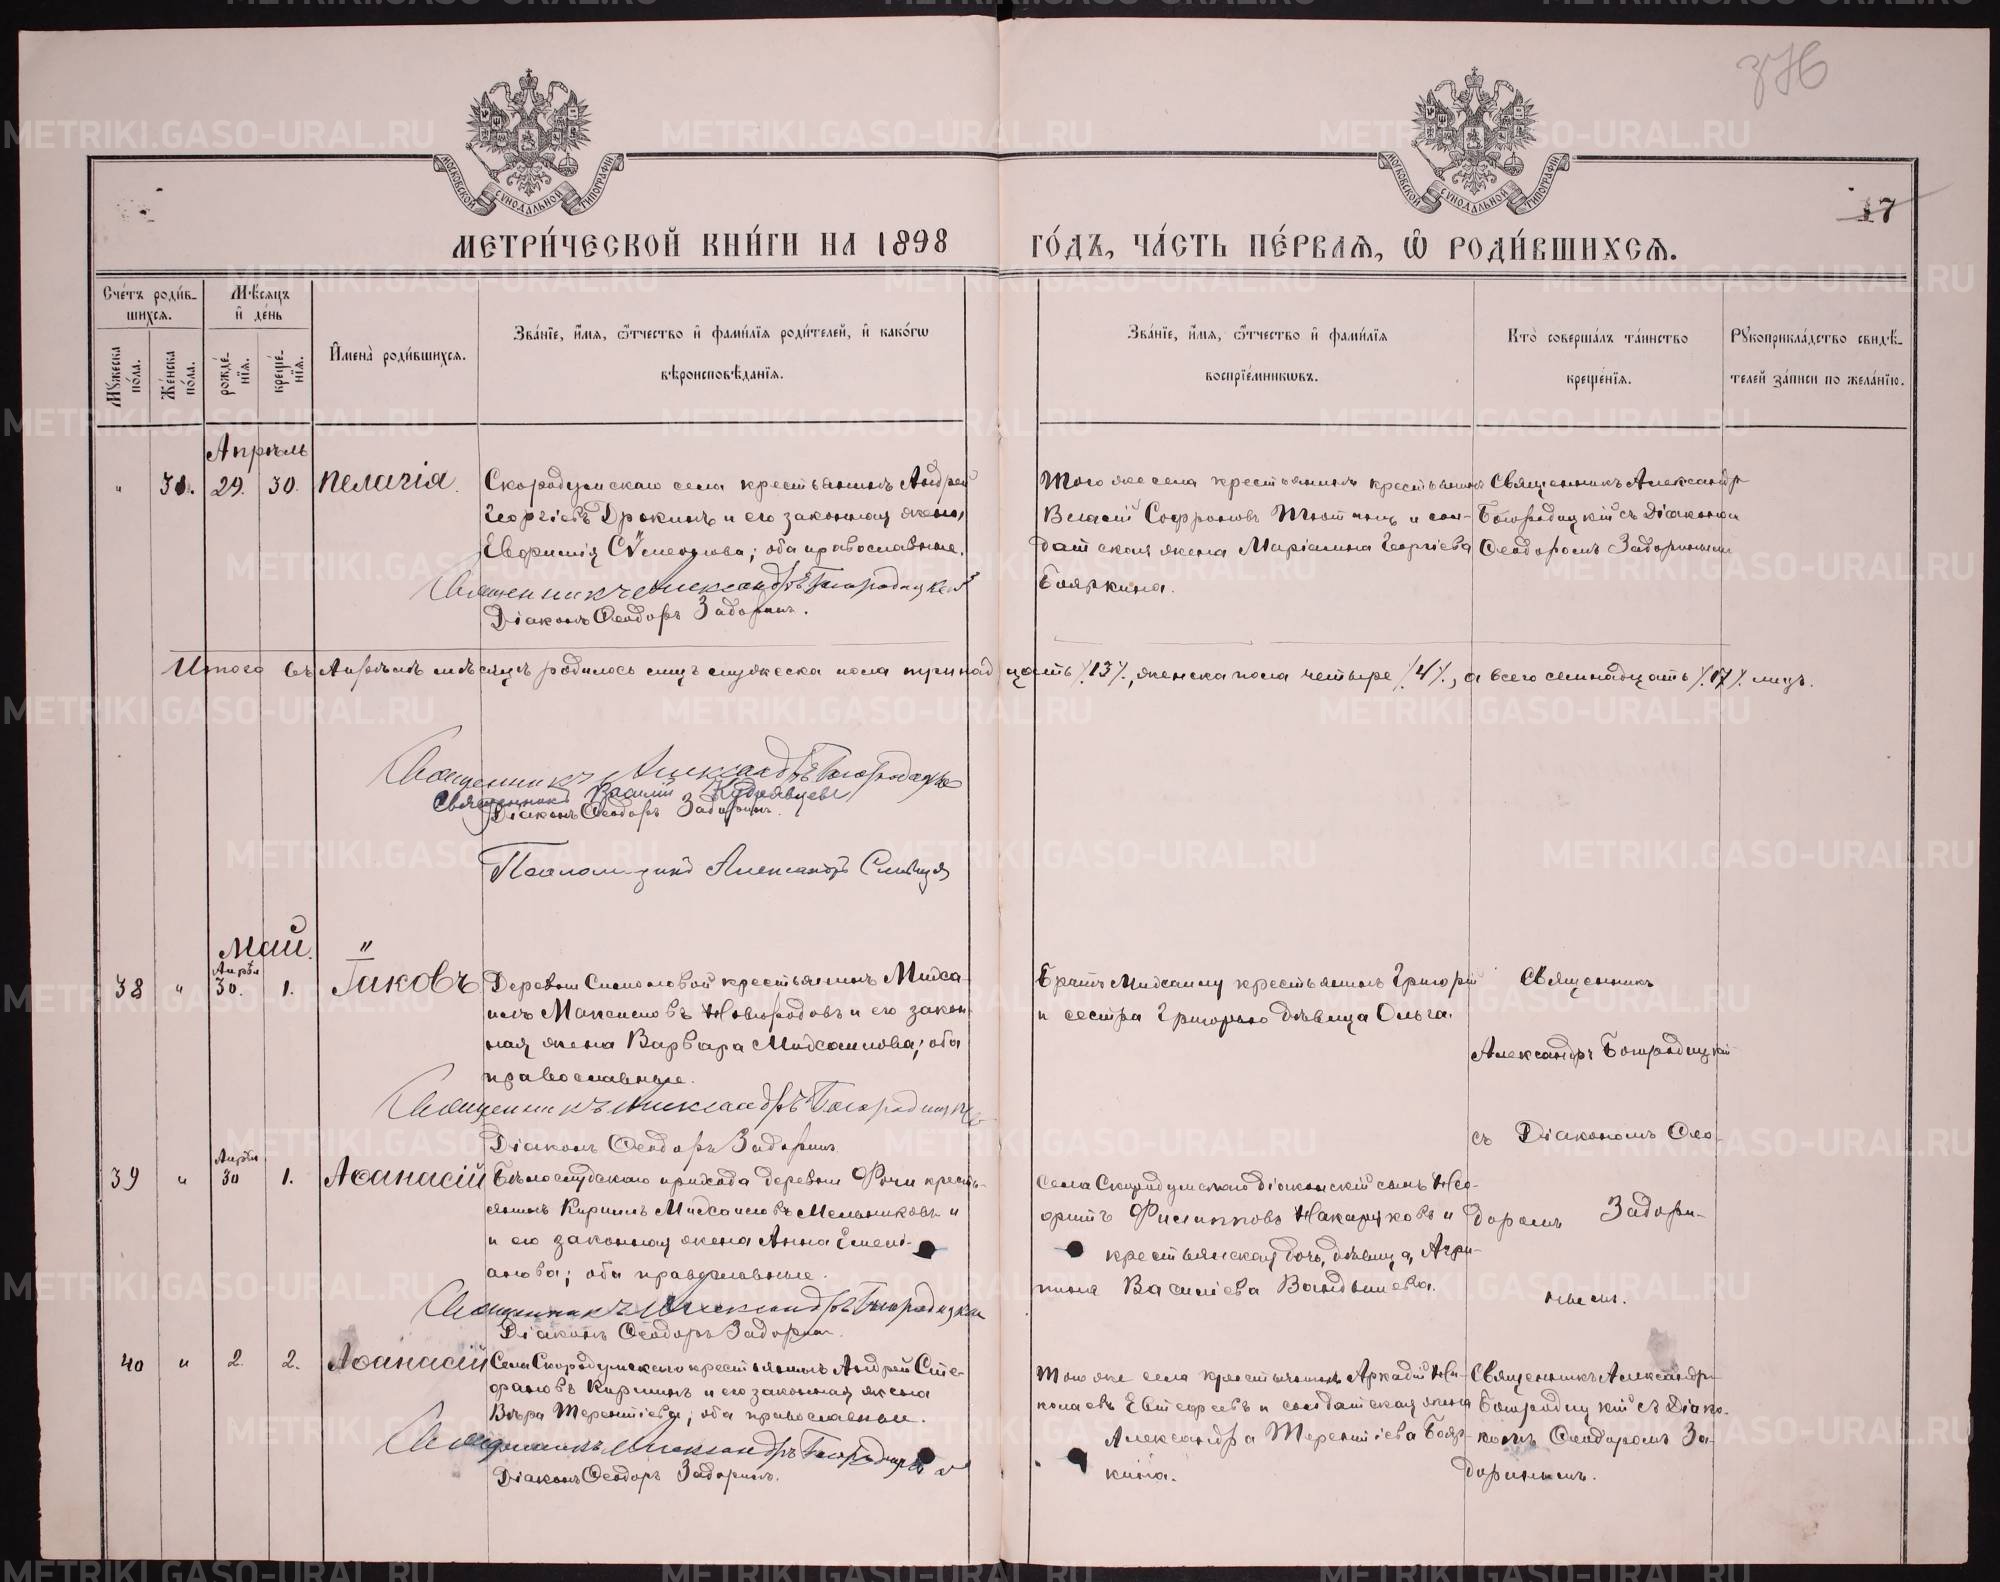 376
МОСКОВСКОЙ СѴНОДАЛЬНОЙ ТИПОГРАФІИ
МОСКОВСКОЙ СѴНОДАЛЬНОЙ ТИПОГРАФІИ
17
МЕТРИ́ЧЕСКОЙ КНИ́ГИ НА 1898 ГО́ДЪ, ЧА́СТЬ ПЕ́РВАѦ, Ѽ РОДИ́ВШИХСѦ.
Сче́тъ роди́в-
шихсѧ.
Мѣ́сѧцъ
и҆ де́нь
Мꙋ́жеска
по́ла.
Же́нска
по́ла.
рожде́-
нїѧ.
креще́-
нїѧ.
И҆мена̀ роди́вшихсѧ.
Зва́нїе, и҆́мѧ, ѻ҆́тчество и҆ фами́лїѧ роди́телей, и҆ како́гѡ
вѣроисповѣ́данїѧ.
Зва́нїе, и҆́мѧ, ѻ҆́тчество и҆ фами́лїѧ
воспрїе́мникѡвъ.
Кто̀ соверша́лъ та́инство
креще́нїѧ.
Рꙋкоприкла́дство свидѣ́-
телей за́писи по жела́нїю.
Апрѣль
" 31. 29. 30. Пелагія.
Скородумскаго села крестьянинъ Андрей
Георгіевъ Дрокинъ и его законная жена,
Евфимія Сѵмеонова; оба православные.
Священникъ Александръ Богородицкій
Діаконъ Ѳеодоръ Задоринъ.
Того же села крестьянинъ крестьянинъ
Власій Софроновъ Тютинъ и сол-
датская жена Маріанна Георгіева
Бояркина.
Священникъ Александръ
Богородицкій съ Діаконом
Ѳеодоромъ Задоринымъ
Итого въ Апрѣлѣ мѣсяцѣ родилось лицъ мужеска пола тринадцать /.13/., женска пола четыре /.4/., а всего семнадцать /.17/. лицъ.
Священникъ Александръ Богородицкій
Священникъ Василій Кудрявцевъ
Діаконъ Ѳеодоръ Задоринъ.
Псаломщикъ Александръ
Май.
38 " Апрѣл 30. 1. Іаковъ
Деревни Симоновой крестьянинъ Мисса-
илъ Максимовъ Новгородовъ и его закон-
ная жена Варвара Миссаилова; оба
православные.
Священникъ Александръ Богородицкій
Діаконъ Ѳеодоръ Задоринъ
Братъ Миссаилу крестьянинъ Григорій
и сестра Григорью дѣвица Ольга.
Священникъ
Александръ Богородицкій
съ Діакономъ Ѳео-
доромъ Задори-
нымъ.
39 " Апрѣл 30 1. Аѳанасій
Бѣлослудскаго прихода деревни Фочи кресть-
янинъ Кириллъ Миссаиловъ Мельниковъ и
и его законная жена Анна Емелі-
анова; оба православные.
Священникъ Александръ Богородицкій
Діаконъ Ѳеодоръ Задоринъ.
Села Скородумскаго діаконскій сынъ Нео-
фитъ Филипповъ и
крестьянская дочь, дѣвица, Агри-
пина Василіева Вандышева.
40 " 2. 2. Аѳанасій
Села Скородумскаго крестьянинъ Андрей Сте-
фановъ Киршинъ и его законная жена
Вѣра Терентіева; оба православные.
Священникъ Александръ Богородицкій
Діаконъ Ѳеодоръ Задоринъ.
Того же села крестьянинъ Аркадій Ни-
колаевъ Евстефеевъ и солдатская жена
Александра Терентіева Бояр-
кина.
Священникъ Александръ
Богородицкій съ Діако-
номъ Ѳеодоромъ За-
доринымъ.
METRIKI.GASO-URAL.RU